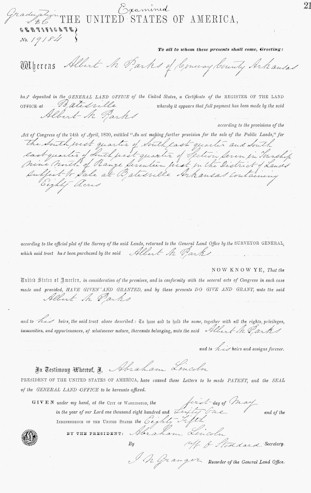 Examined
21
THE UNITED STATES OF AMERICA,
CERTIFICATE
No. 19184
To all to whom these presents shall come, Greeting:
Whereas Albert M Parks of Conway County Arkansas
has deposited in the GENERAL LAND OFFICE of the United States, a Certificate of the REGISTER OF THE LAND
OFFICE at Batesville whereby it appears that full payment has been made by the said
Albert M Parks
according to the provisions of the
Act of Congress of the 24th of April, 1820, entitled "An act making further provision for the sale of the Public Lands," for
the South west quarter of South east quarter and South
east quarter of South west quarter of Section Seven in Township
Nine North of Range Seventeen West in the District of Lands
Subject to Sale at Batesville Arkansas containing
Eighty Acres
according to the official plat of the Survey of the said Lands, returned to the General Land Office by the SURVEYOR GENERAL,
which said tract has been purchased by the said Albert M Parks
NOW KNOW YE, That the
United States of America, in consideration of the premises, and in conformity with the several acts of Congress in such case
made and provided, HAVE GIVEN AND GRANTED, and by these presents DO GIVE AND GRANT, unto the said
Albert M Parks
and to his heirs, the said tract above described: To have and to hold the same, together with all the rights, privileges,
immunities, and appurtenances, of whatsoever nature, thereunto belonging, unto the said Albert M Parks
and to his heirs and assigns forever.
In Testimony Whereof, I, Abraham Lincoln
PRESIDENT OF THE UNITED STATES OF AMERICA, have caused these Letters to be made PATENT, and the SEAL
of the GENERAL LAND OFFICE to be hereunto affixed.
GIVEN under my hand, at the CITY OF WASHINGTON, the first day of May
in the year of our Lord one thousand eight hundred and Sixty One and of the
INDEPENDENCE OF THE UNITED STATES the Eighty Fifth
BY THE PRESIDENT: Abraham Lincoln
By W. O. Stoddard Secretary.
J. N. Granger Recorder of the General Land Office.